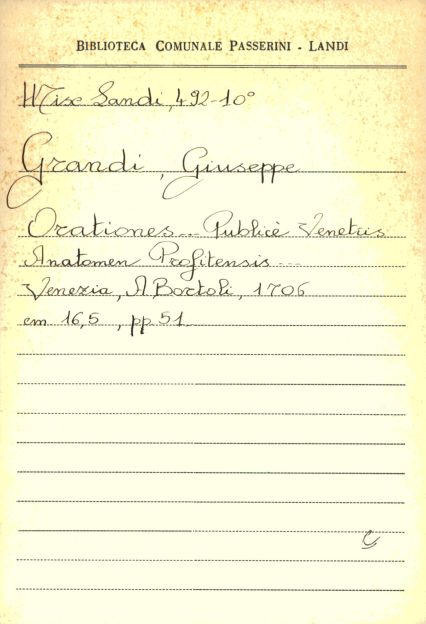 BIBLIOTECA COMUNALE PASSERINI - LANDI
Misc Landi, 492-10°
Grandi, Giuseppe
Orationes... Publicè Venetiis
Anatomen Profitensis...
Venezia, A Bortoli, 1706
cm 16,5, pp 51